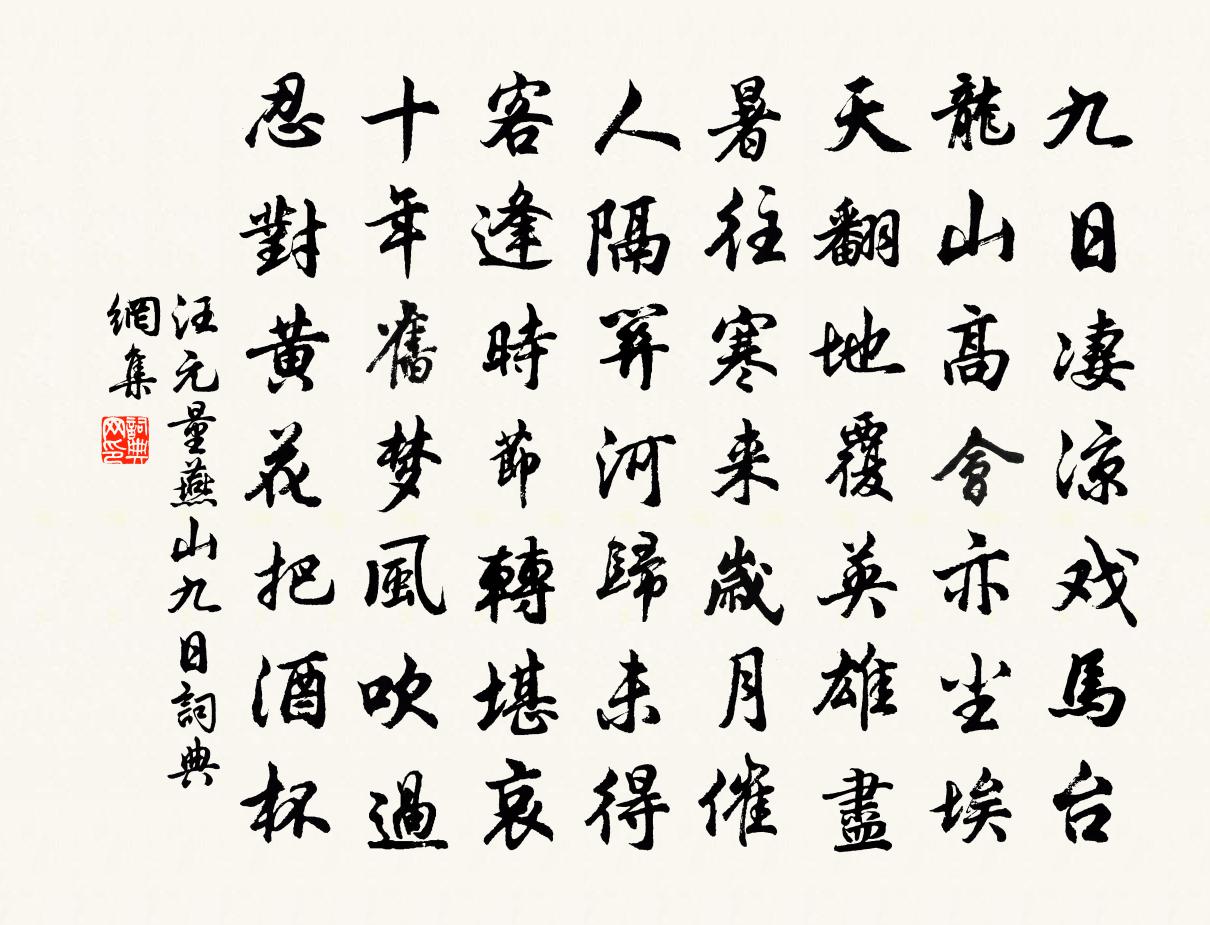 九日凄涼戏馬台
龍山高會亦尘埃
天翻地覆英雄盡
暑往寒来歲月催
人隔関河歸未得
客逢時節轉堪哀
十年舊梦風吹過
忍對黄花把酒杯
汪元量燕山九日詞典
網集
詞典
网印